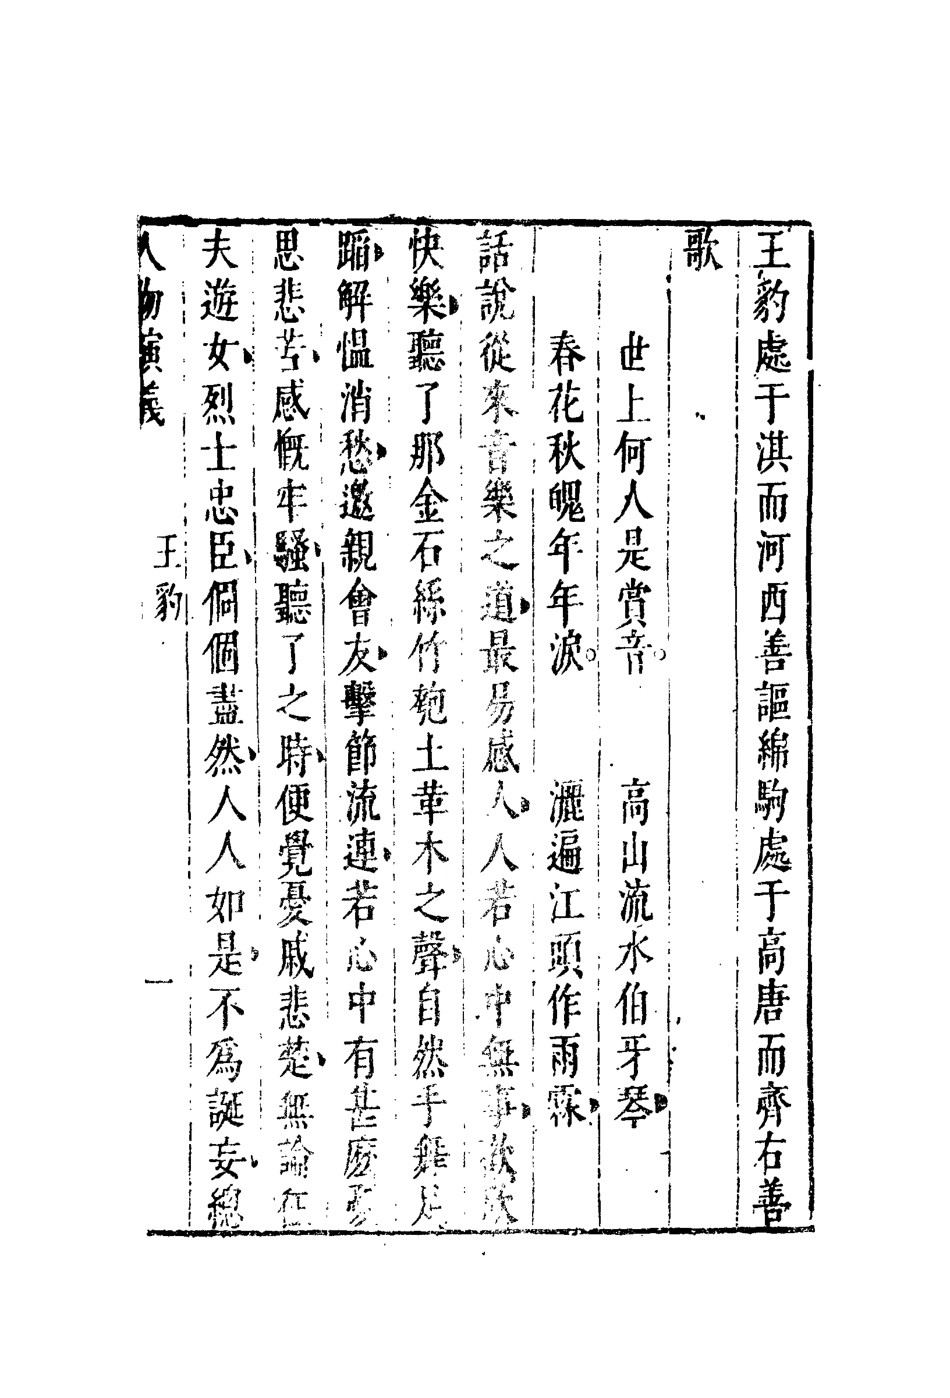 王豹處于淇而河西善謳綿駒處于高唐而齊右善
歌
世上何人是賞音。　高山流水伯牙琴、
春花秋魄年年淚。　灑遍江頭作雨霖、
話說從來音樂之道、最易感人、人若心中無事、歡欣
快樂、聽了那金石絲竹匏土革木之聲、自然手舞足
蹈、解慍消愁、邀親會友、擊節流連、若心中有甚麼憂
思悲苦、感慨牢騷、聽了之時、便覺憂戚悲楚、無論征
夫遊女、烈士忠臣、個個盡然、人人如是、不爲誕妄、總
人物演義　王豹　一